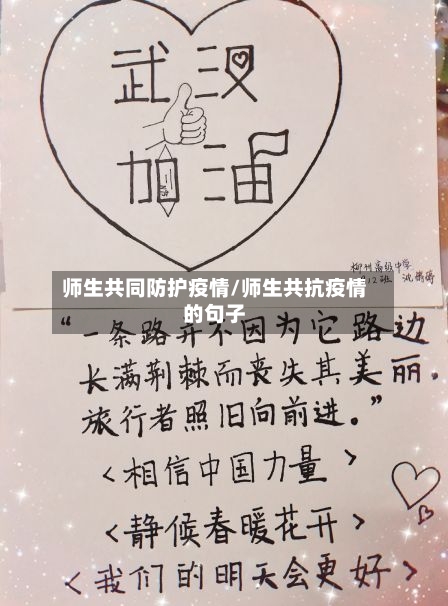 武汉
加油
柳州高级中学
12班
师生共同防护疫情/师生共抗疫情
的句子
“一条路并不因为它路边
长满荆棘而丧失其美丽.
旅行者照旧向前进。”
<相信中国力量>
<静候春暖花开>
<我们的明天会更好>